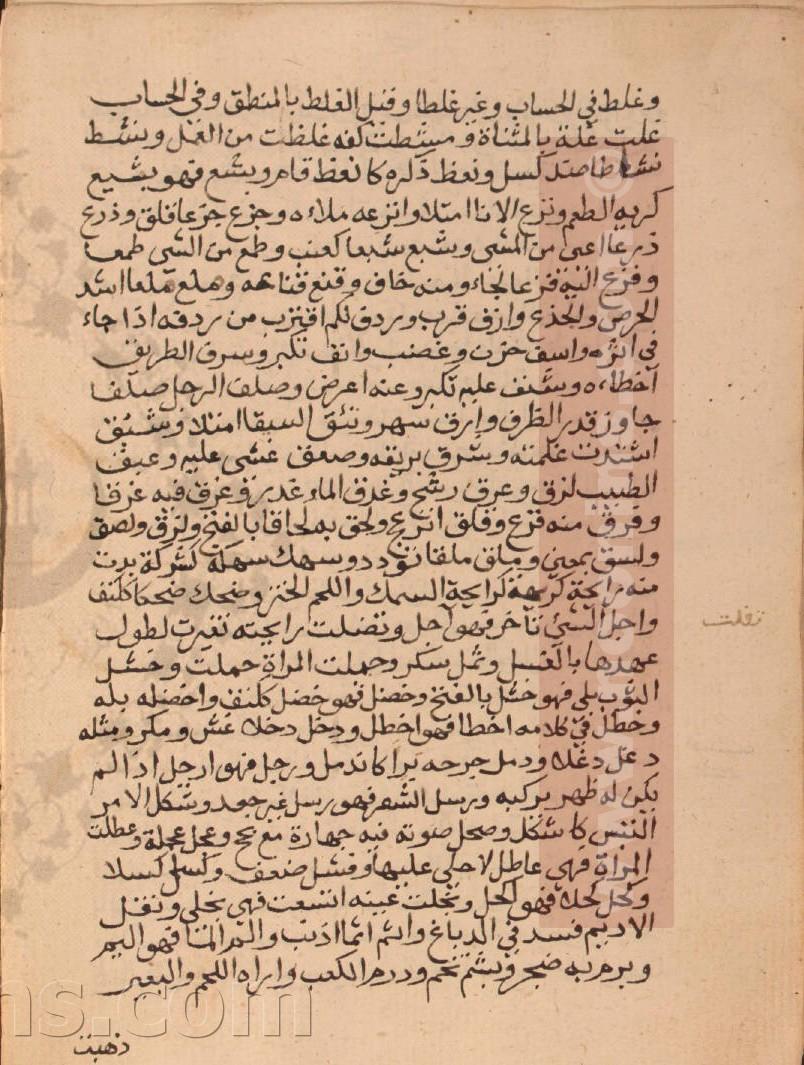 وغلط في الحساب وغيره غلطا وقيل الغلط بالمنطق وفي الحساب
غلت غلة بالمثناة ومشطت كفه غلظت من العمل ونشط
نشاطا ضد كسل ونعظ ذكره كانعظ قام وبشع فهو بشيع
كريه الطعم وترع الانا امتلا واترعه ملاءه وجزع جزعا قلق وذرع
ذرعا اعى من المشى وشبع شبعا كعنب وطمع من الشى طمعا
وفزع اليه فزعا لجاء ومنه خاف وقنع قناعه وهلع هلعا اشد
الحرص والجذع وازف قرب وردف لكم اقترب من ردفه اذا جاء
في اثره واسف حزن وغضب وانف تكبر وسرف الطريق
اخطاءه وشنف عليه تكبر وعنه اعرض وصلف الرجل صلفا
جاوز قدر الظرف وارق سهر وتئق السقا امتلا وشبق
اشتدت غلمته وشرق بريقه وصعق غشى عليه وعبق
الطيب لزق وعرق رشح وغدق الماء غدير وغرق فيه غرقا
وفرق منه فزع وقلق انزعج ولحق به لحاقا بالفتح ولزق ولصق
ولسق بمعنى وملق ملقا تودد وسهك سهكة كشركة بدت
منه رايحة كريهة كرايحة السمك واللحم الخنز وضحك ضحكا ككتف
واجل الشئ تاخر فهو آجل وتفلت رايحته تغيرت لطول
تفلت
عهدها بالغسل وثمل سكر وحملت المراة حملت وخشل
الثوب بلى فهو خشل بالفتح وخضل فهو خضل ككتف واخضله بله
وخطل في كلامه اخطا فهو اخطل ودخل دخلا غش ومكر ومثله
دغل دغلا ودمل جرحه برا كاندمل ورجل فهو ارجل اذا لم
يكن له ظهر يركبه ورسل الشعر فهو رسل غير جعد وشكل الامر
التبس كاشكل وصحل صوته فيه جهارة مع بحح وعجل عجلة وعطلت
المراة فهي عاطل لا حلى عليها وفشل ضعف وكسل كسلا
وكحل كحلا فهو اكحل ونجلت عينه اتسعت فهى نجلى ونغل
الاديم فسد في الدباغ واثم اثما اذنب والم المنا فهو اليم
وبرم به ضجر وبشم تخم ودرم الكعب واراه اللحم والبعير
ذهبت